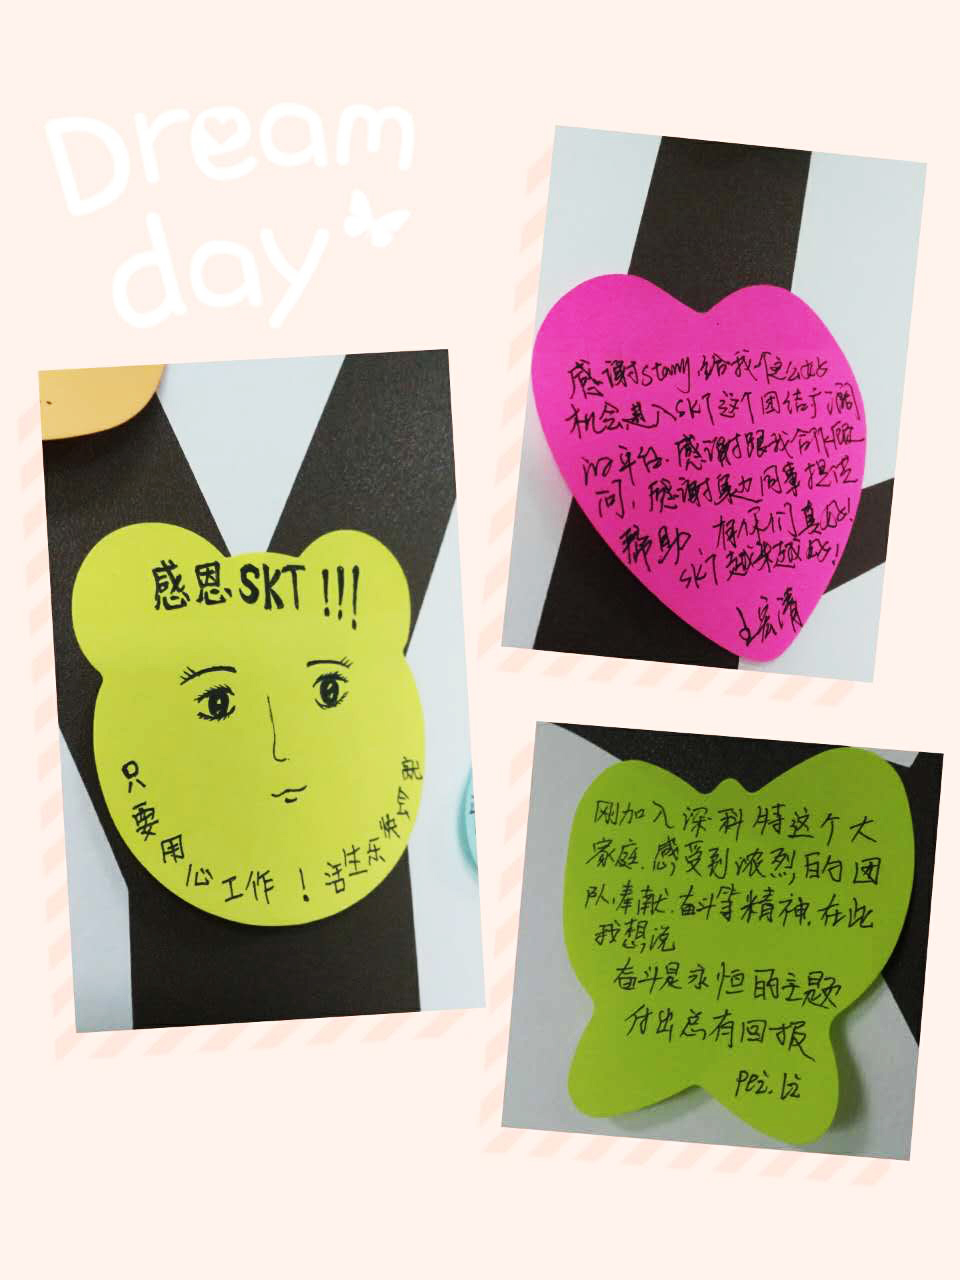 Dream
day
感恩SKT!!!
只要用心工作!活生乐
感谢stamy给我这么好
机会进入SKT这个团结
的平台.感谢跟我合作顾
问!感谢同事提供
帮助.有你们真好!
SKT越来越好!
王宏清
刚加入深科特这个大
家庭.感受到浓烈的团
队,奉献.奋斗等精神.在此
我想说
奋斗是永恒的主题
付出总有回报
pei.li